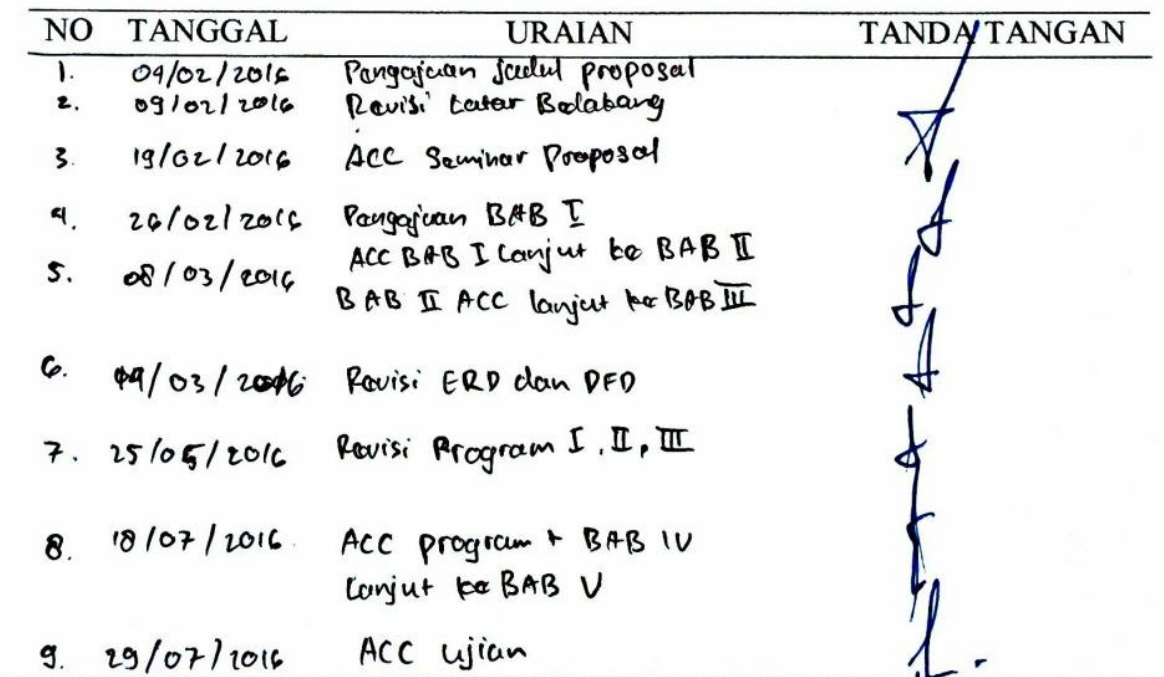 NO TANGGAL URAIAN TANDA TANGAN
1. 04/02/2016 Pengajuan Judul proposal
2. 09/02/2016 Revisi Latar Belakang
3. 19/02/2016 ACC Seminar Proposal
4. 26/02/2016 Pengajuan BAB I
ACC BAB I Lanjut ke BAB II
5. 08/03/2016
BAB II ACC lanjut ke BAB III
6. /03/2016 Revisi ERD dan DFD
7. 25/05/2016 Revisi Program I, II, III
8. 18/07/2016 ACC program + BAB IV
Lanjut ke BAB V
9. 29/07/2016 ACC ujian